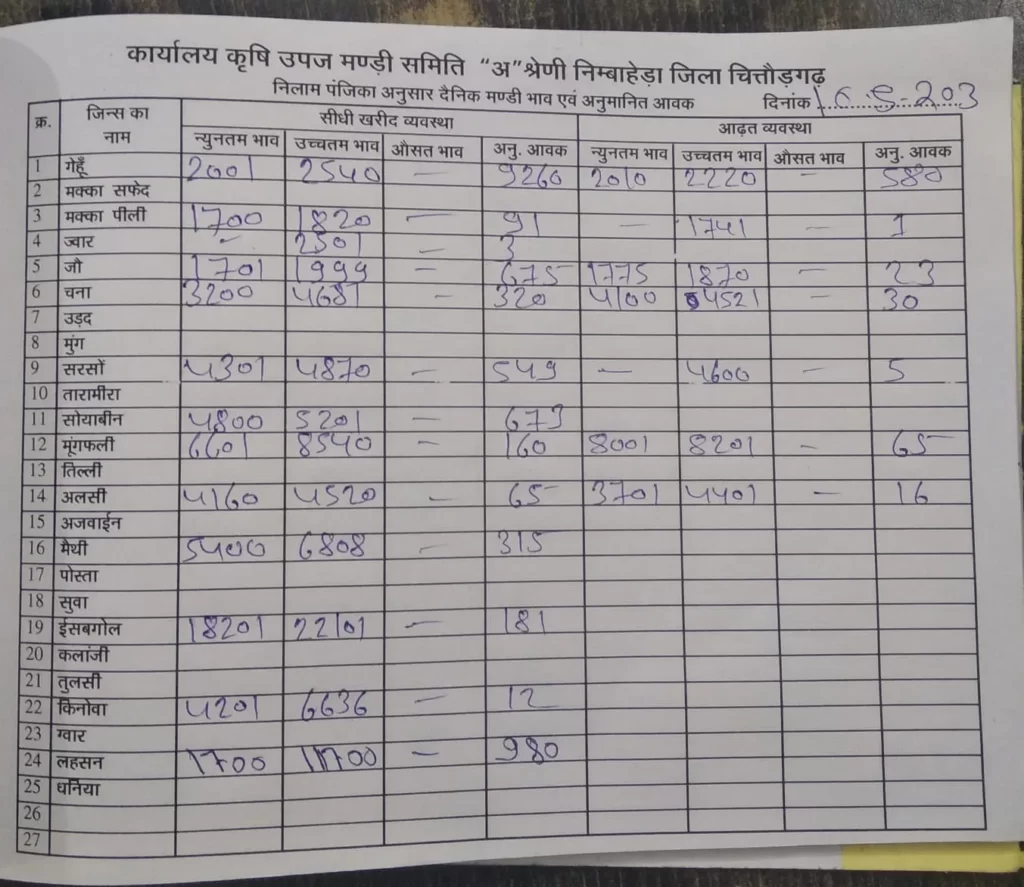 कार्यालय कृषि उपज मण्डी समिति "अ"श्रेणी निम्बाहेड़ा जिला चित्तौड़गढ़
निलाम पंजिका अनुसार दैनिक मण्डी भाव एवं अनुमानित आवक दिनांक 16.5-203
क्र. जिन्स का नाम सीधी खरीद व्यवस्था आढ़त व्यवस्था
न्युनतम भाव उच्चतम भाव औसत भाव अनु. आवक न्युनतम भाव उच्चतम भाव औसत भाव अनु. आवक
1 गेहूँ 2001 2540 — 9260 2010 2220 —
2 मक्का सफेद
3 मक्का पीली 1700 1820 — 91 — 1741 — 1
4 ज्वार - 2501 — 3
5 जौ 1701 1999 — 675 1775 1870 — 23
6 चना 3200 4681 — 320 4100 4521 — 30
7 उड़द
8 मुंग
9 सरसों 4301 4870 — 549 — 4600 — 5
10 तारामीरा
11 सोयाबीन 4800 5201 — 673
12 मूंगफली 6601 8540 — 160 8001 8201 — 65
13 तिल्ली
14 अलसी 4160 4520 — 65 3701 4401 — 16
15 अजवाईन
16 मैथी 5400 6808 — 315
17 पोस्ता
18 सुवा
19 ईसबगोल 18201 22101 — 181
20 कलांजी
21 तुलसी
22 किनोवा 4201 6636 — 12
23 ग्वार
24 लहसन 1700 11700 — 980
25 धनिया
26
27